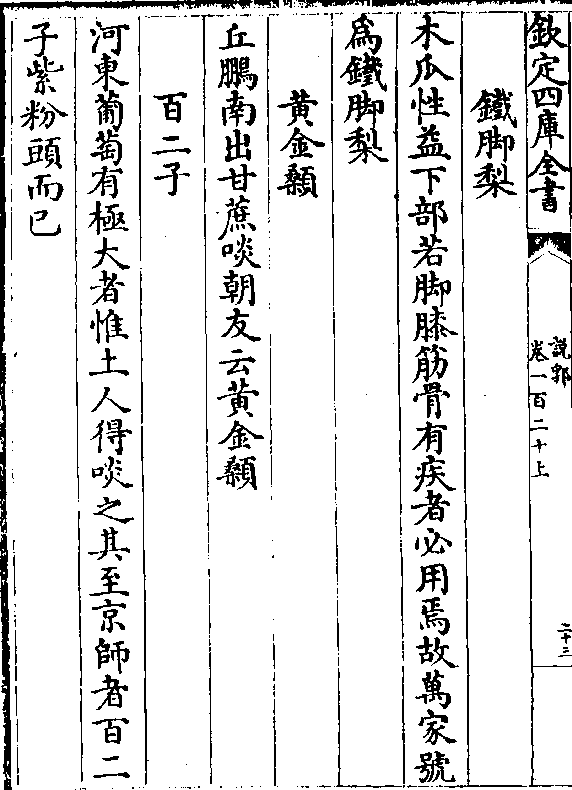 欽定四庫全書
說郛
卷一百二十上
二十三
鐵脚梨
木瓜性益下部若脚膝筋骨有疾者必用焉故萬家號
為鐵脚梨
黃金顙
丘鵬南出甘蔗啖朝友云黃金顙
百二子
河東葡萄有極大者惟土人得啖之其至京師者百二
子紫粉頭而已